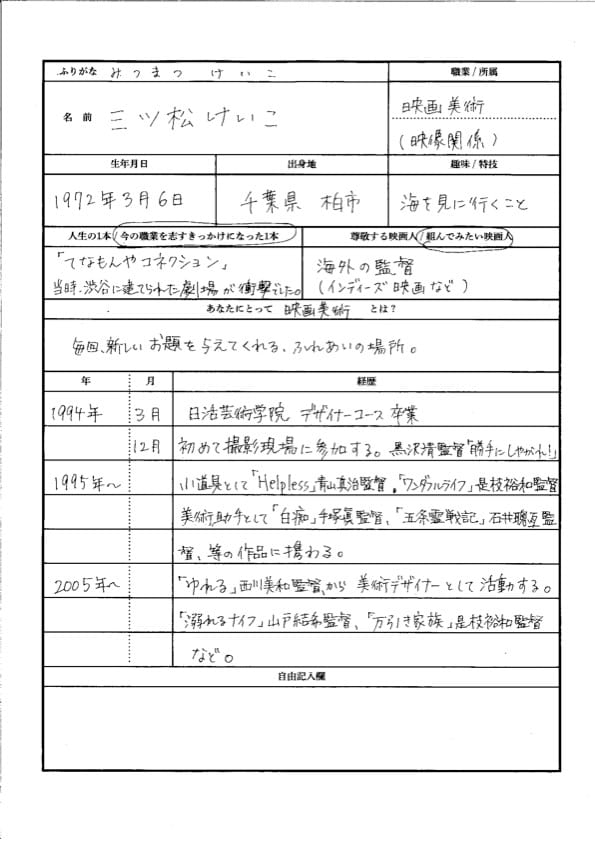 ふりがな みつまつ けいこ
職業/所属
名前 三ツ松けいこ
映画美術
(映像関係)
生年月日 出身地 趣味/特技
1972年3月6日 千葉県 柏市 海を見に行くこと
人生の1本/今の職業を志すきっかけになった1本 尊敬する映画人/組んでみたい映画人
「てなもんやコネクション」 海外の監督
当時、渋谷に建てられた劇場が衝撃でした。 (インディーズ映画など)
あなたにとって 映画美術 とは?
毎回、新しいお題を与えてくれる、ふれあいの場所。
年 月 経歴
1994年 3月 日活芸術学院 デザイナーコース 卒業
12月 初めて撮影現場に参加する。黒沢清監督「勝手にしやがれ!」
1995年〜 小道具として「Helpless」青山真治監督、「ワンダフルライフ」是枝裕和監督
美術助手として「白痴」手塚眞監督、「五条霊戦記」石井聰亙監
督、等の作品に携わる。
2005年〜 「ゆれる」西川美和監督、から 美術デザイナーとして活動する。
「溺れるナイフ」山戸結希監督、「万引き家族」是枝裕和監督
など。
自由記入欄